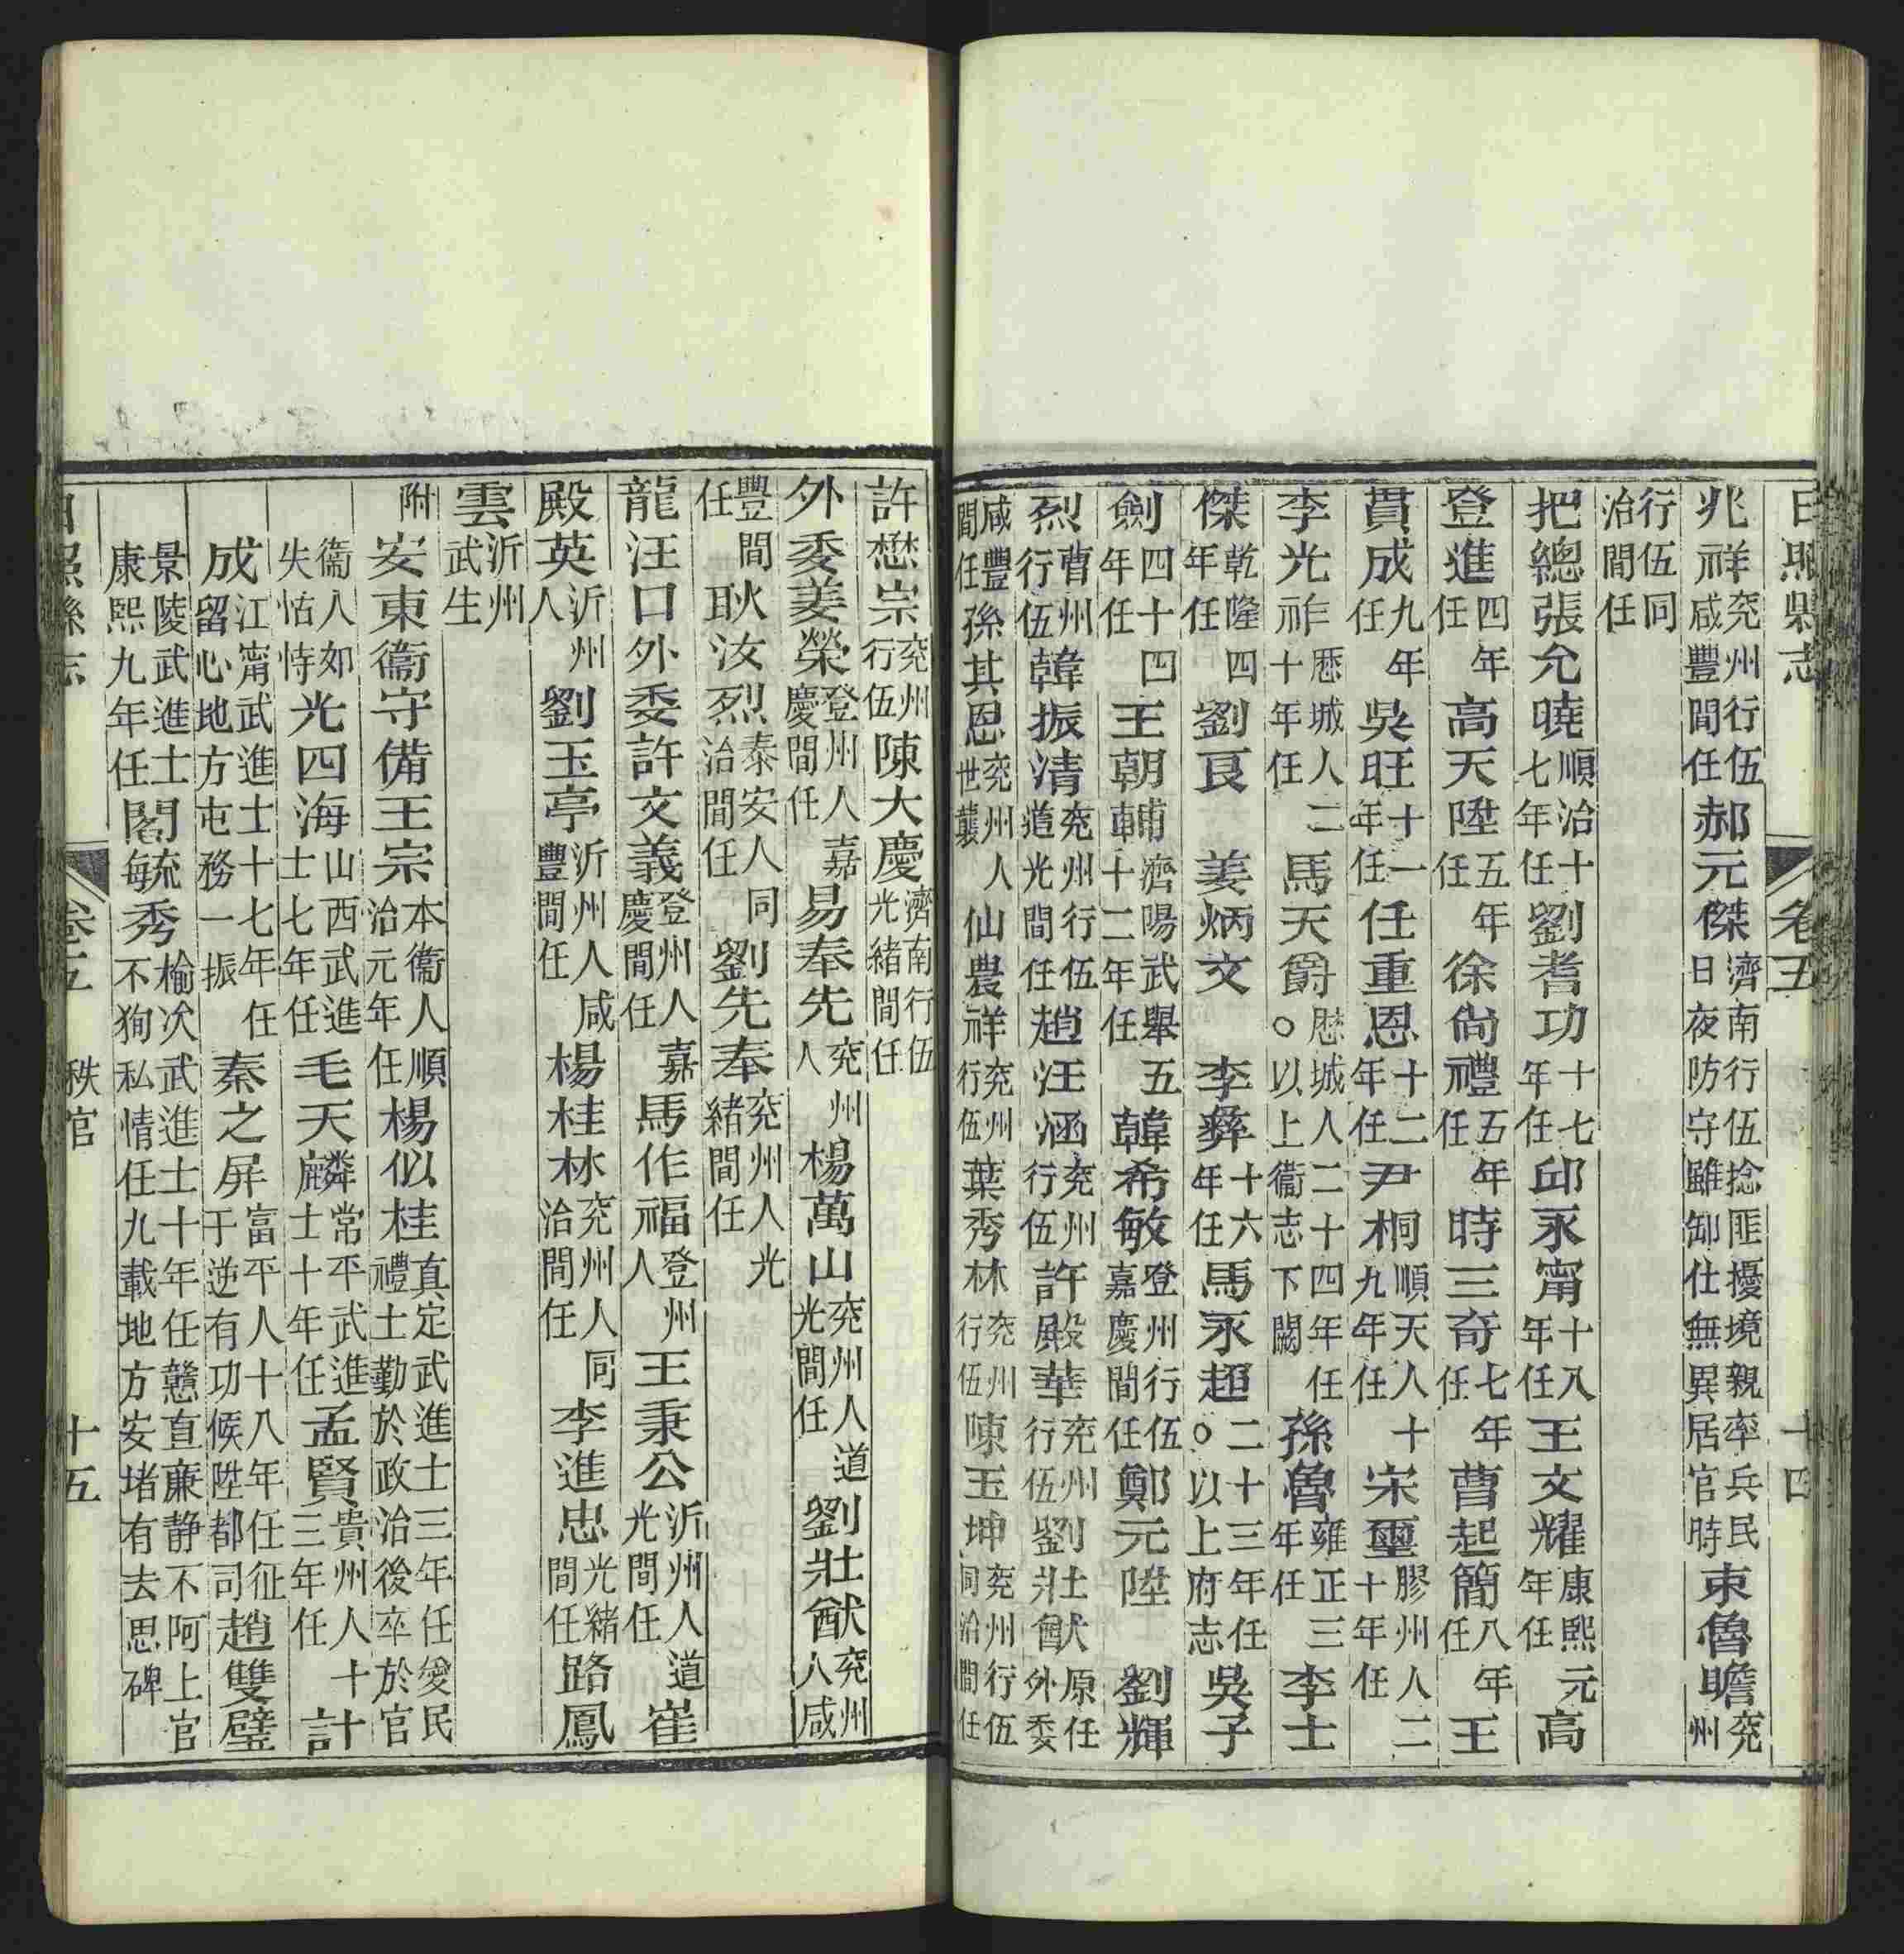 日照縣志 卷五 十四
兆祥兖州行伍咸豐間任郝元傑濟南行伍捻匪擾境親率兵民日夜防守雖卸仕無異居官時束魯瞻兖州
行伍同治間任
把總張允曉順治十七年任劉耆功十七年任邱永甯十八年任王文耀康熙元年任高
登進四年任高天陞五年任徐尙禮五年任時三奇七年任曹起簡八年任王
貫成九年任吳旺十一年任任重恩十二年任尹桐順天人十九年任宋璽膠州人二十年任
李光祚歷城人二十年任馬天爵歷城人二十四年任○以上衞志下闕孫魯雍正三年任李士
傑乾隆四年任劉良 姜炳文 李彝十六年任馬永超二十三年任○以上府志吳子
劍四十四年任王朝輔濟陽武舉五十二年任韓希敏登州行伍嘉慶間任鄭元陞 劉輝
烈曹州行伍韓振清兖州行伍道光間任趙汪涵兖州行伍許殿華兖州行伍劉壯猷原任外委
咸豐間任孫其恩兖州人世襲仙農祥兖州行伍葉秀林兖州行伍陳玉坤兖州行伍同治間任
許懋宗兖州行伍陳大慶濟南行伍光緒間任
外委姜榮登州人嘉慶間任易奉先兖州人楊萬山兖州人道光間任劉壯猷兖州人咸
豐間任耿汝烈泰安人同治間任劉先奉兖州人光緒間任
龍汪口外委許文義登州人嘉慶間任馬作福登州人王秉公沂州人道光間任崔
殿英沂州人劉玉亭沂州人咸豐間任楊桂林兖州人同治間任李進忠光緒間任路鳳
雲沂州武生
附安東衞守備王宗本衞人順治元年任楊似桂真定武進士三年任愛民禮士勤於政治後卒於官
衞人如失怙恃光四海山西武進士七年任毛天麟常平武進士十年任孟賢貴州人十三年任計
成江甯武進士十七年任留心地方屯務一振秦之屏富平人十八年任征于逆有功候陞都司趙雙璧
景陵武進士康熙九年任閻毓秀榆次武進士十年任戇直廉静不阿上官不狥私情任九載地方安堵有去思碑
日照縣志 卷五 秩官 十五